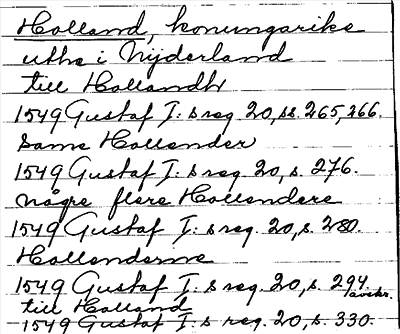 Holland, konungarike
uthe i Nijderland
till Hollandh
1549 Gustaf I:s reg. 20, ss. 265, 266.
Some Hollender
1549 Gustaf I:s reg. 20, s. 276.
någre flere Hollendere
1549 Gustaf I:s reg. 20, s. 280.
Hollenderne
1549 Gustaf I:s reg. 20, s. 294.
avskr.
till Holland
1549 Gustaf I:s reg. 20, s. 330.